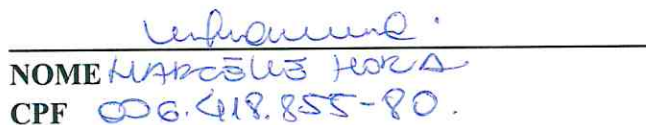 NOME MARCELLE HORA
CPF 006.418.855-80.